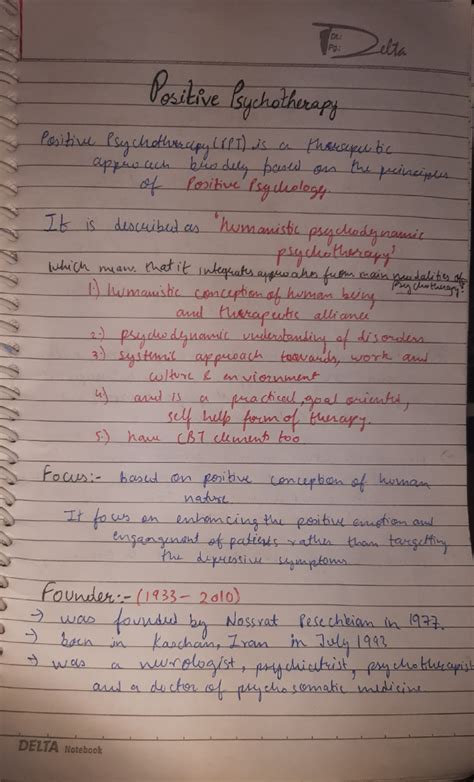 Dt:
Pg:
Delta
Positive Psychotherapy
Positive Psychotherapy (PPT) is a therapeutic
approach broadly based on the principles
of Positive Psychology.
It is described as "humanistic psychodynamic
psychotherapy"
which means that it integrates approaches from main modalities of
psychotherapy:
1) humanistic conception of human being
and therapeutic alliance
2:) psychodynamic understanding of disorders
3:) systemic approach towards, work and
culture & enviornment
4) and is a practical, goal oriented,
self help form of therapy.
5:) have CBT elements too
Focus:- based on positive conception of human
nature
It focus on enhancing the positive emotion and
engangement of patients rather than targetting
the depressive symptoms
Founder:- (1933- 2010)
→ was founded by Nossrat Peseschkian in 1977.
→ born in Kaschan, Iran in July 1933
→ was a neurologist, psychiatrist, psychotherapist
and a doctor of psychosomatic medicine
DELTA Notebook